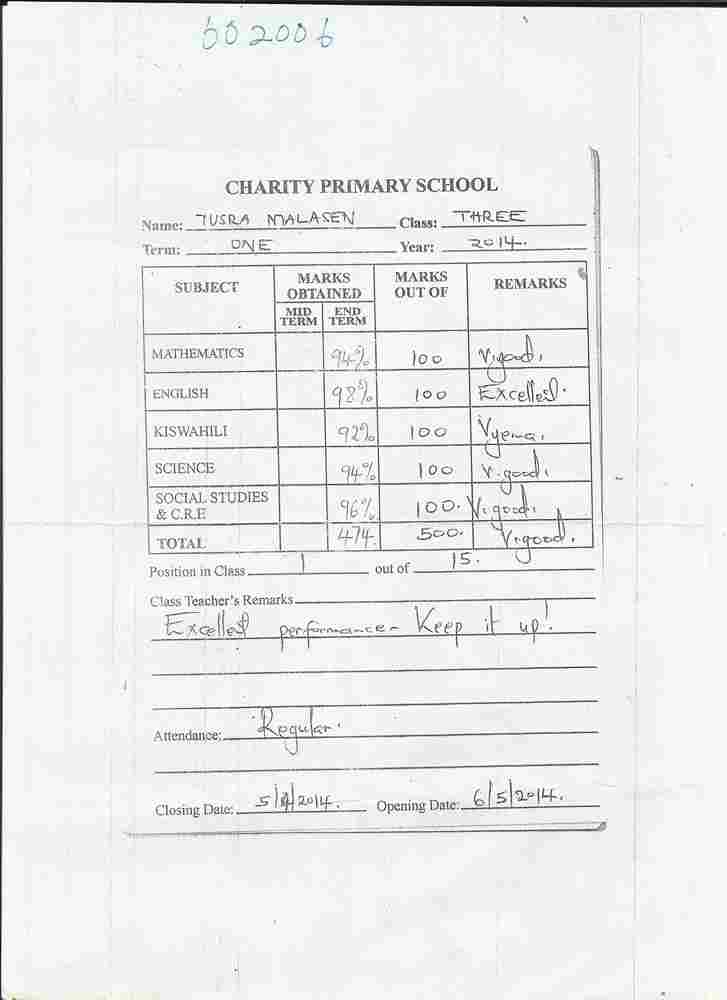 002006
CHARITY PRIMARY SCHOOL
Name: TUSRA MALASEN Class: THREE
Term: ONE Year: 2014.
SUBJECT MARKS OBTAINED MARKS OUT OF REMARKS
MID TERM END TERM
MATHEMATICS 94% 100 V.good.
ENGLISH 98% 100 Excellent.
KISWAHILI 92% 100 Vyema.
SCIENCE 94% 100 V.good.
SOCIAL STUDIES & C.R.E 96% 100. V.good.
TOTAL 474. 500. V.good.
Position in Class 1 out of 15.
Class Teacher's Remarks
Excellent performance- Keep it up!
Attendance: Regular.
Closing Date: 5/4/2014. Opening Date: 6/5/2014.